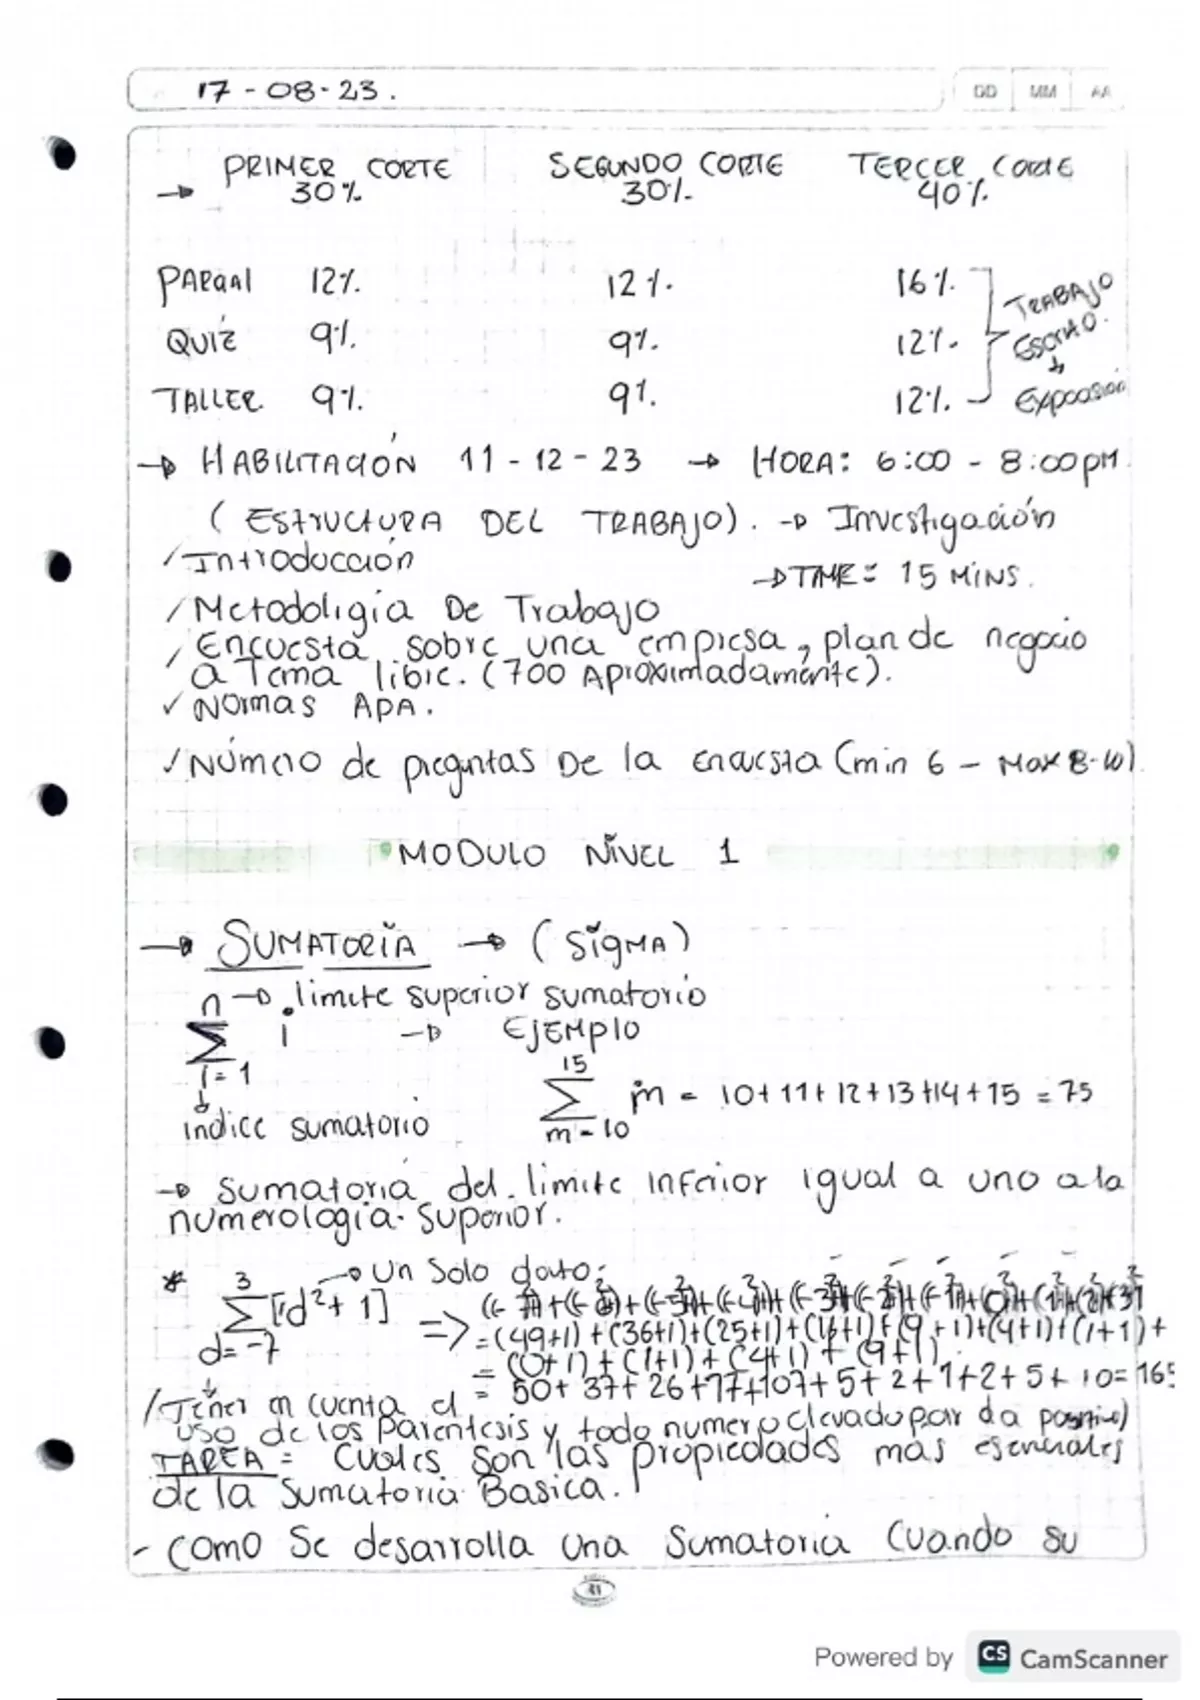 17-08-23.
DD MM AA
PRIMER CORTE SEGUNDO CORTE TERCER CORTE
→ 30% 30% 40%
PARCIAL 12% 12% 16%
QUIZ 9% 9% 12%
TALLER 9% 9% 12%
TRABAJO
Escrito.
↓
Exposición
→ HABILITACIÓN 11-12-23 → HORA: 6:00 - 8:00pM
(ESTRUCTURA DEL TRABAJO). → Investigación
/ Introducción
→ TIME: 15 MINS.
/ Metodoligia De Trabajo
/ Encuesta sobre una empresa, plan de negocio
a Tema libre. (700 Aproximadamente).
✓ Normas APA.
/ Número de preguntas De la Encuesta (min 6 - Max 8-10)
MODULO NIVEL 1
→ SUMATORIA → (SIGMA)
n → limite superior sumatorio
Σ i → EJEMPlO
i=1
↓
indice sumatorio
15
Σ m = 10+11+12+13+14+15 = 75
m=10
→ Sumatoria del limite inferior igual a uno a la
numerologia superior.
* 3 → Un Solo dato:
Σ [d²+1] =>
d=-7
=(49+1)+(36+1)+(25+1)+(16+1)+(9+1)+(4+1)+(1+1)+
= (0+1)+(1+1)+(4+1)+(9+1).
= 50+37+26+17+10+5+2+1+2+5+10=165
/ Tener en cuenta el
uso de los parentesis y todo numero elevado par da positivo)
TAREA = Cuales son las propiedades mas esenciales
de la Sumatoria Basica.
- Como Se desarrolla una Sumatoria Cuando su
Powered by CS CamScanner